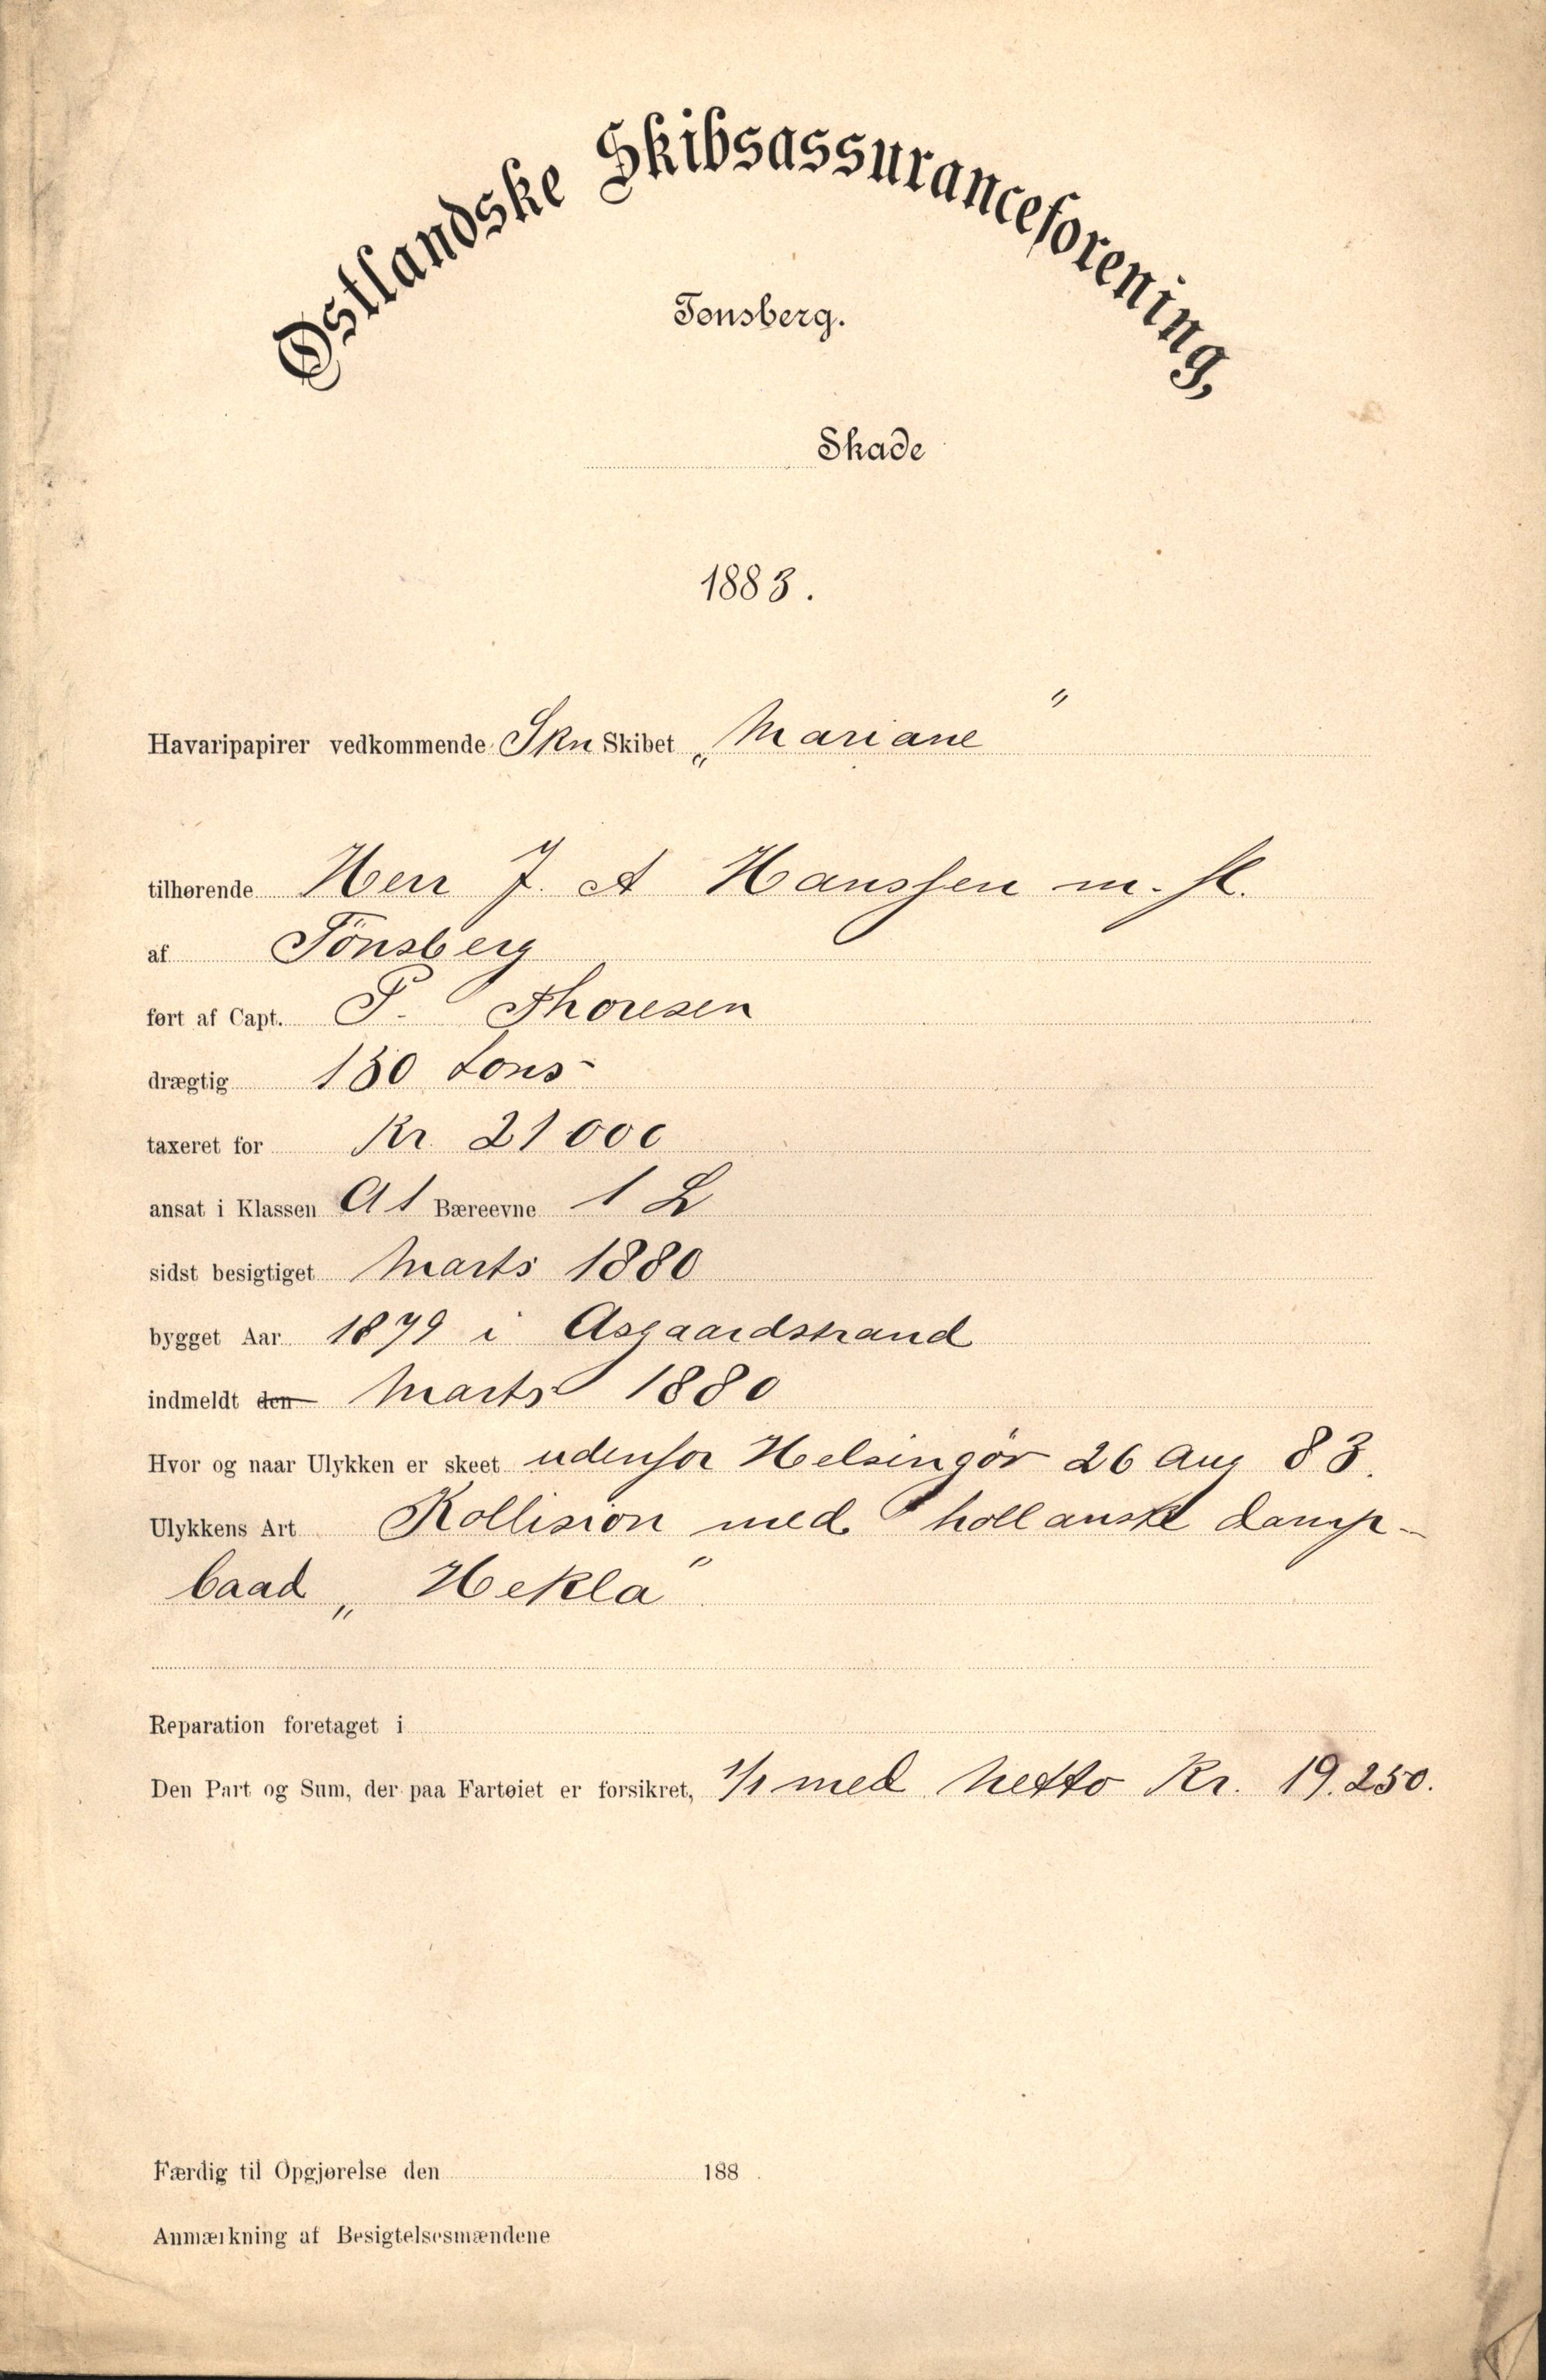 Østlandske Skibsassuranceforening,
Tønsberg.
Skade
1883.
Havaripapirer vedkommende Skn Skibet „Mariane"
tilhørende Herr J. A Hanssen m. fl.
af Tönsberg
ført af Capt. P. Thoresen
drægtig 130 tons
taxeret for Kr 21000
ansat i Klassen A1 Bæreevne 1 L
sidst besigtiget Marts 1880
bygget Aar 1879 i Asgaardstrand
indmeldt den Marts 1880
Hvor og naar Ulykken er skeet udenfor Helsingör 26 Aug 83.
Ulykkens Art Kollision med hollansk damp-
baad „Hekla"
Reparation foretaget i
Den Part og Sum, der paa Fartøiet er forsikret, 1/1 med netto Kr. 19.250.
Færdig til Opgjørelse den 188 .
Anmærkning af Besigtelsesmændene